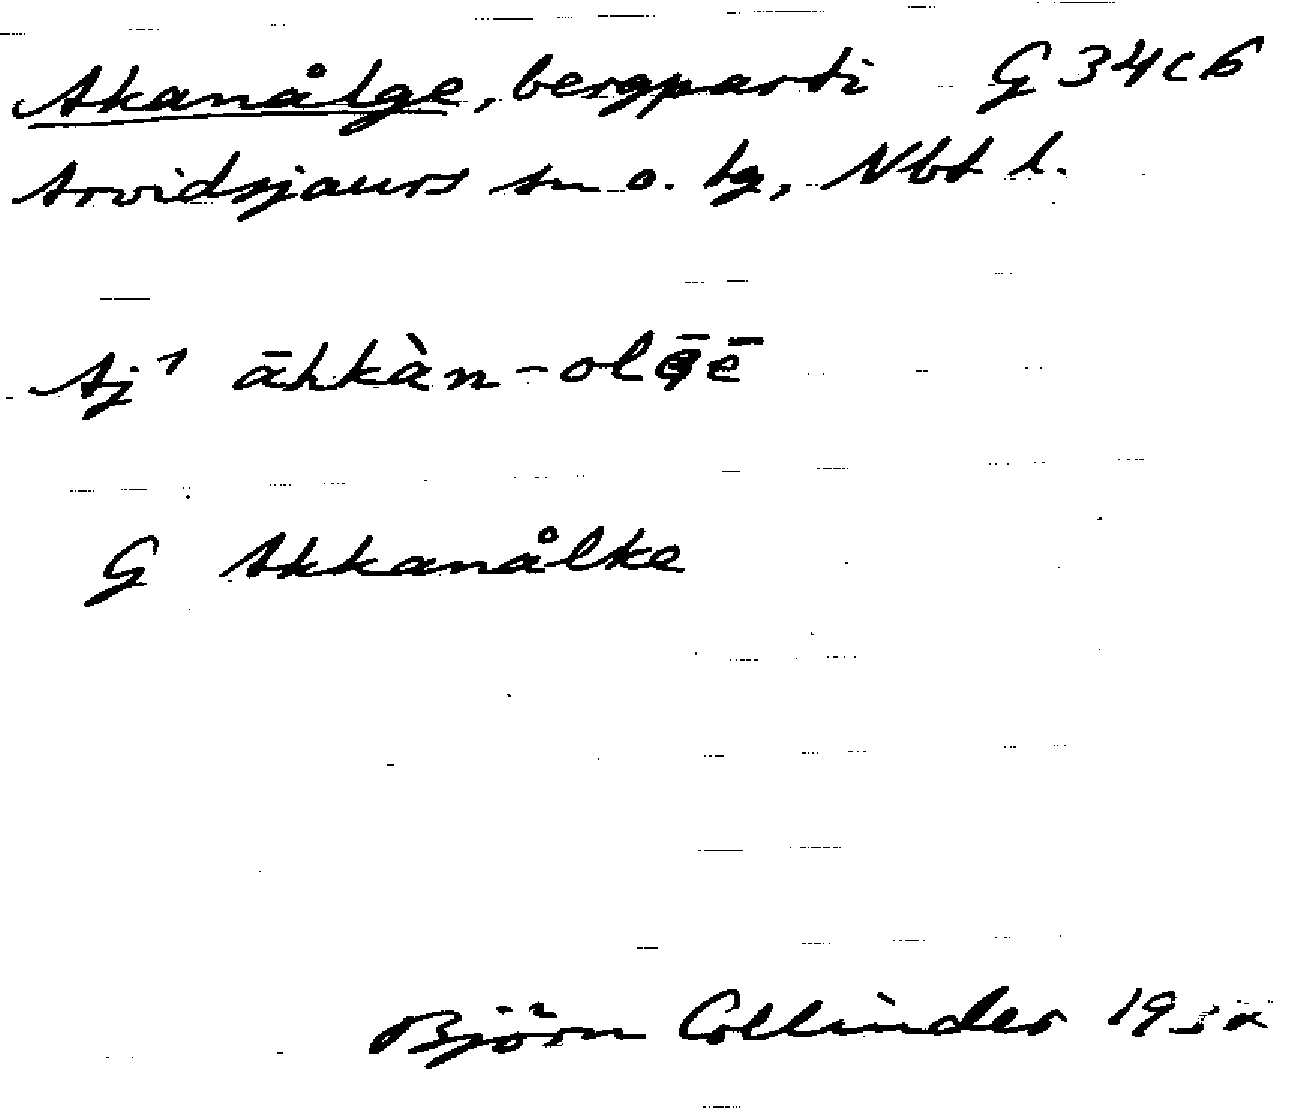 Akanålge, bergparti G 34 c b
Arvidsjaurs sn o. tg, Nbt l.
Aj 1 āhkàn-olḡē
G Akkanålke
Björn Collinder 19